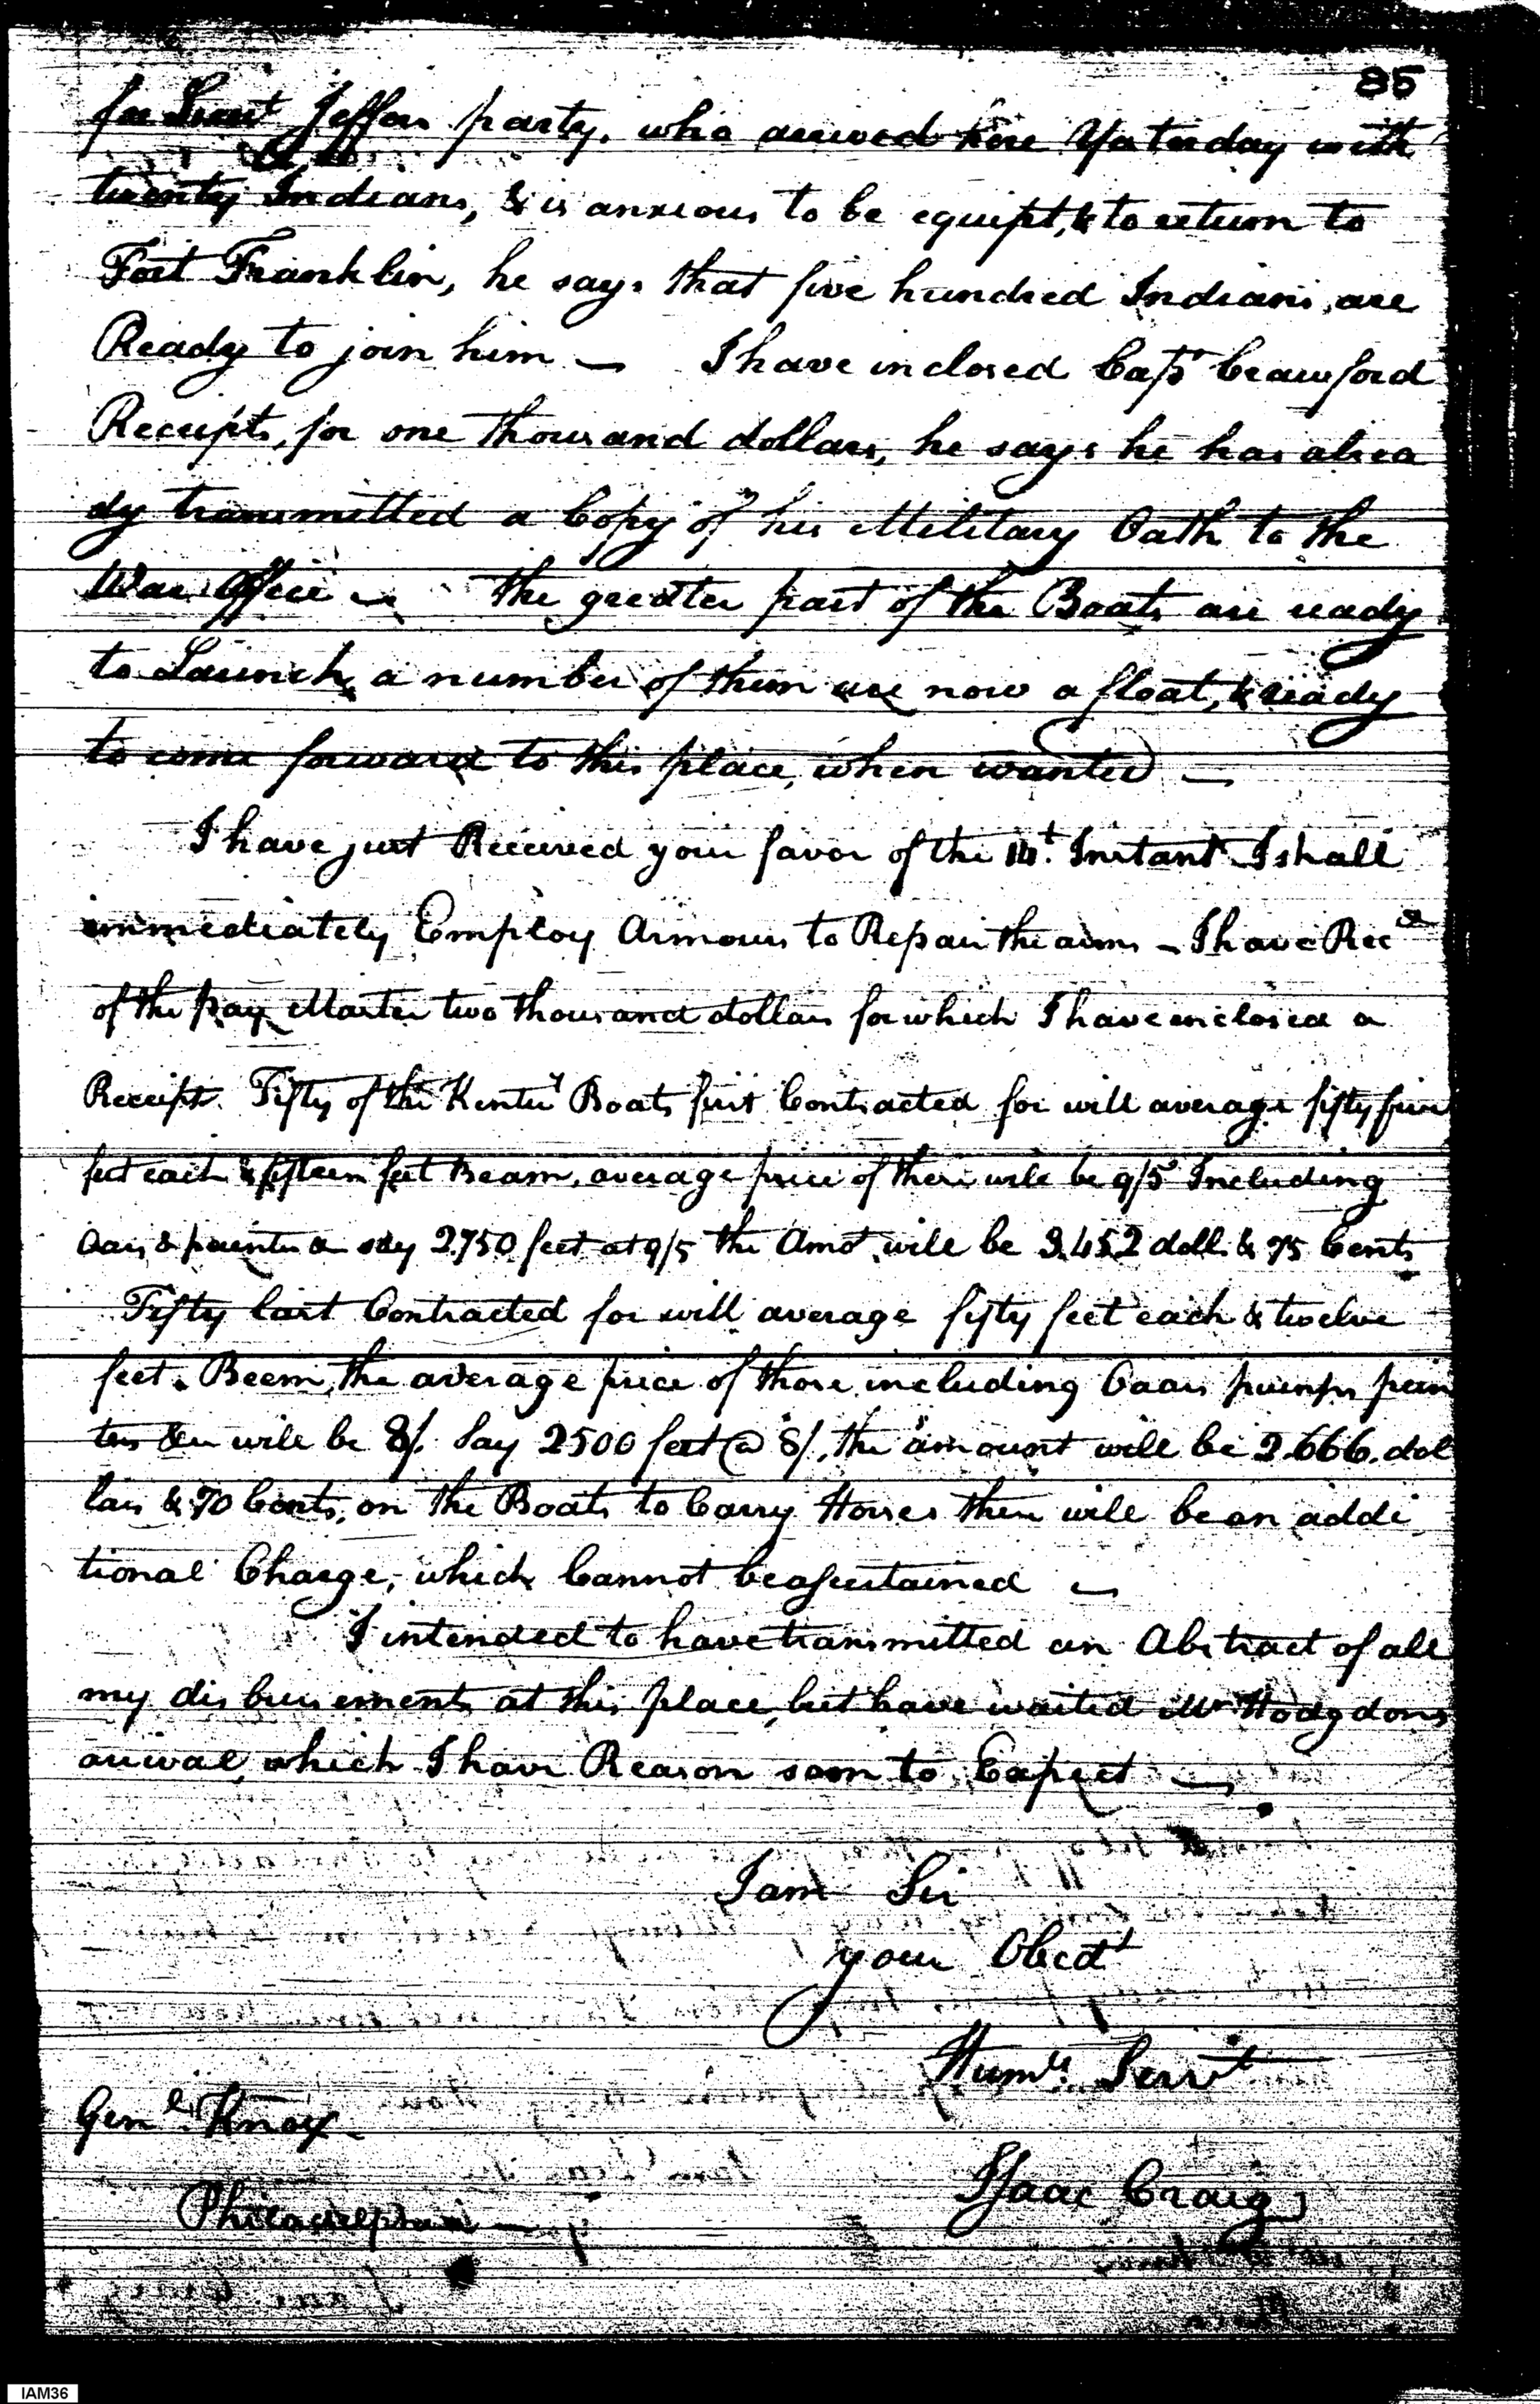 85
for Lieut Jeffers party, who arrived here Yesterday with
twenty Indians, & is anxious to be equipt, & to return to
Fort Franklin, he says that five hundred Indians, are
Ready to join him — I have inclosed Capt Crawford
Receipts, for one thousand dollars, he says he has alrea
dy transmitted a Copy of his Military Oath to the
War Office — the greater part of the Boats are ready
to Launch, a number of them are now a float, & ready
to come forward to this place, when wanted —
I have just Received your favor of the 14t. Instant I shall
immediately Employ Armours to Repair the arms — I have Recd
of the pay Master two thousand dollars for which I have inclosed a
Receipt. Fifty of the Kentuy Boats first Contracted for will average fifty five
feet each & fifteen feet Beam, average price of these will be 9/5 Including
Oars & painters say 2.750 feet at 9/5 the Amot will be 3.452 dolls & 75 Cents
Fifty last Contracted for will average fifty feet each & twelve
feet Beem, the average price of those including Oaars pumps pain
ters &c will be 8/. Say 2500 feet @ 8/, the amount will be 2.666. dol
lars & 70 Cents, on the Boats to Carry Horses there will be an addi
tional Charge, which Cannot be assertained —
I intended to have transmitted an Abstract of all
my disbursements at this place, but have waited Mr Hodgdons
arival, which I have Reason soon to Expect —
I am Sir
your Obedt
Humle. Servt
Genl Knox
Isaac Craig
Philadelphia —
IAM36